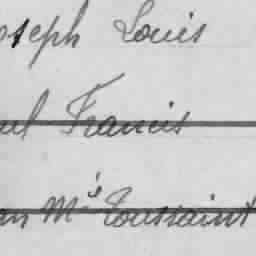 oseph Louis
ul Francis
an Mc Toussaint